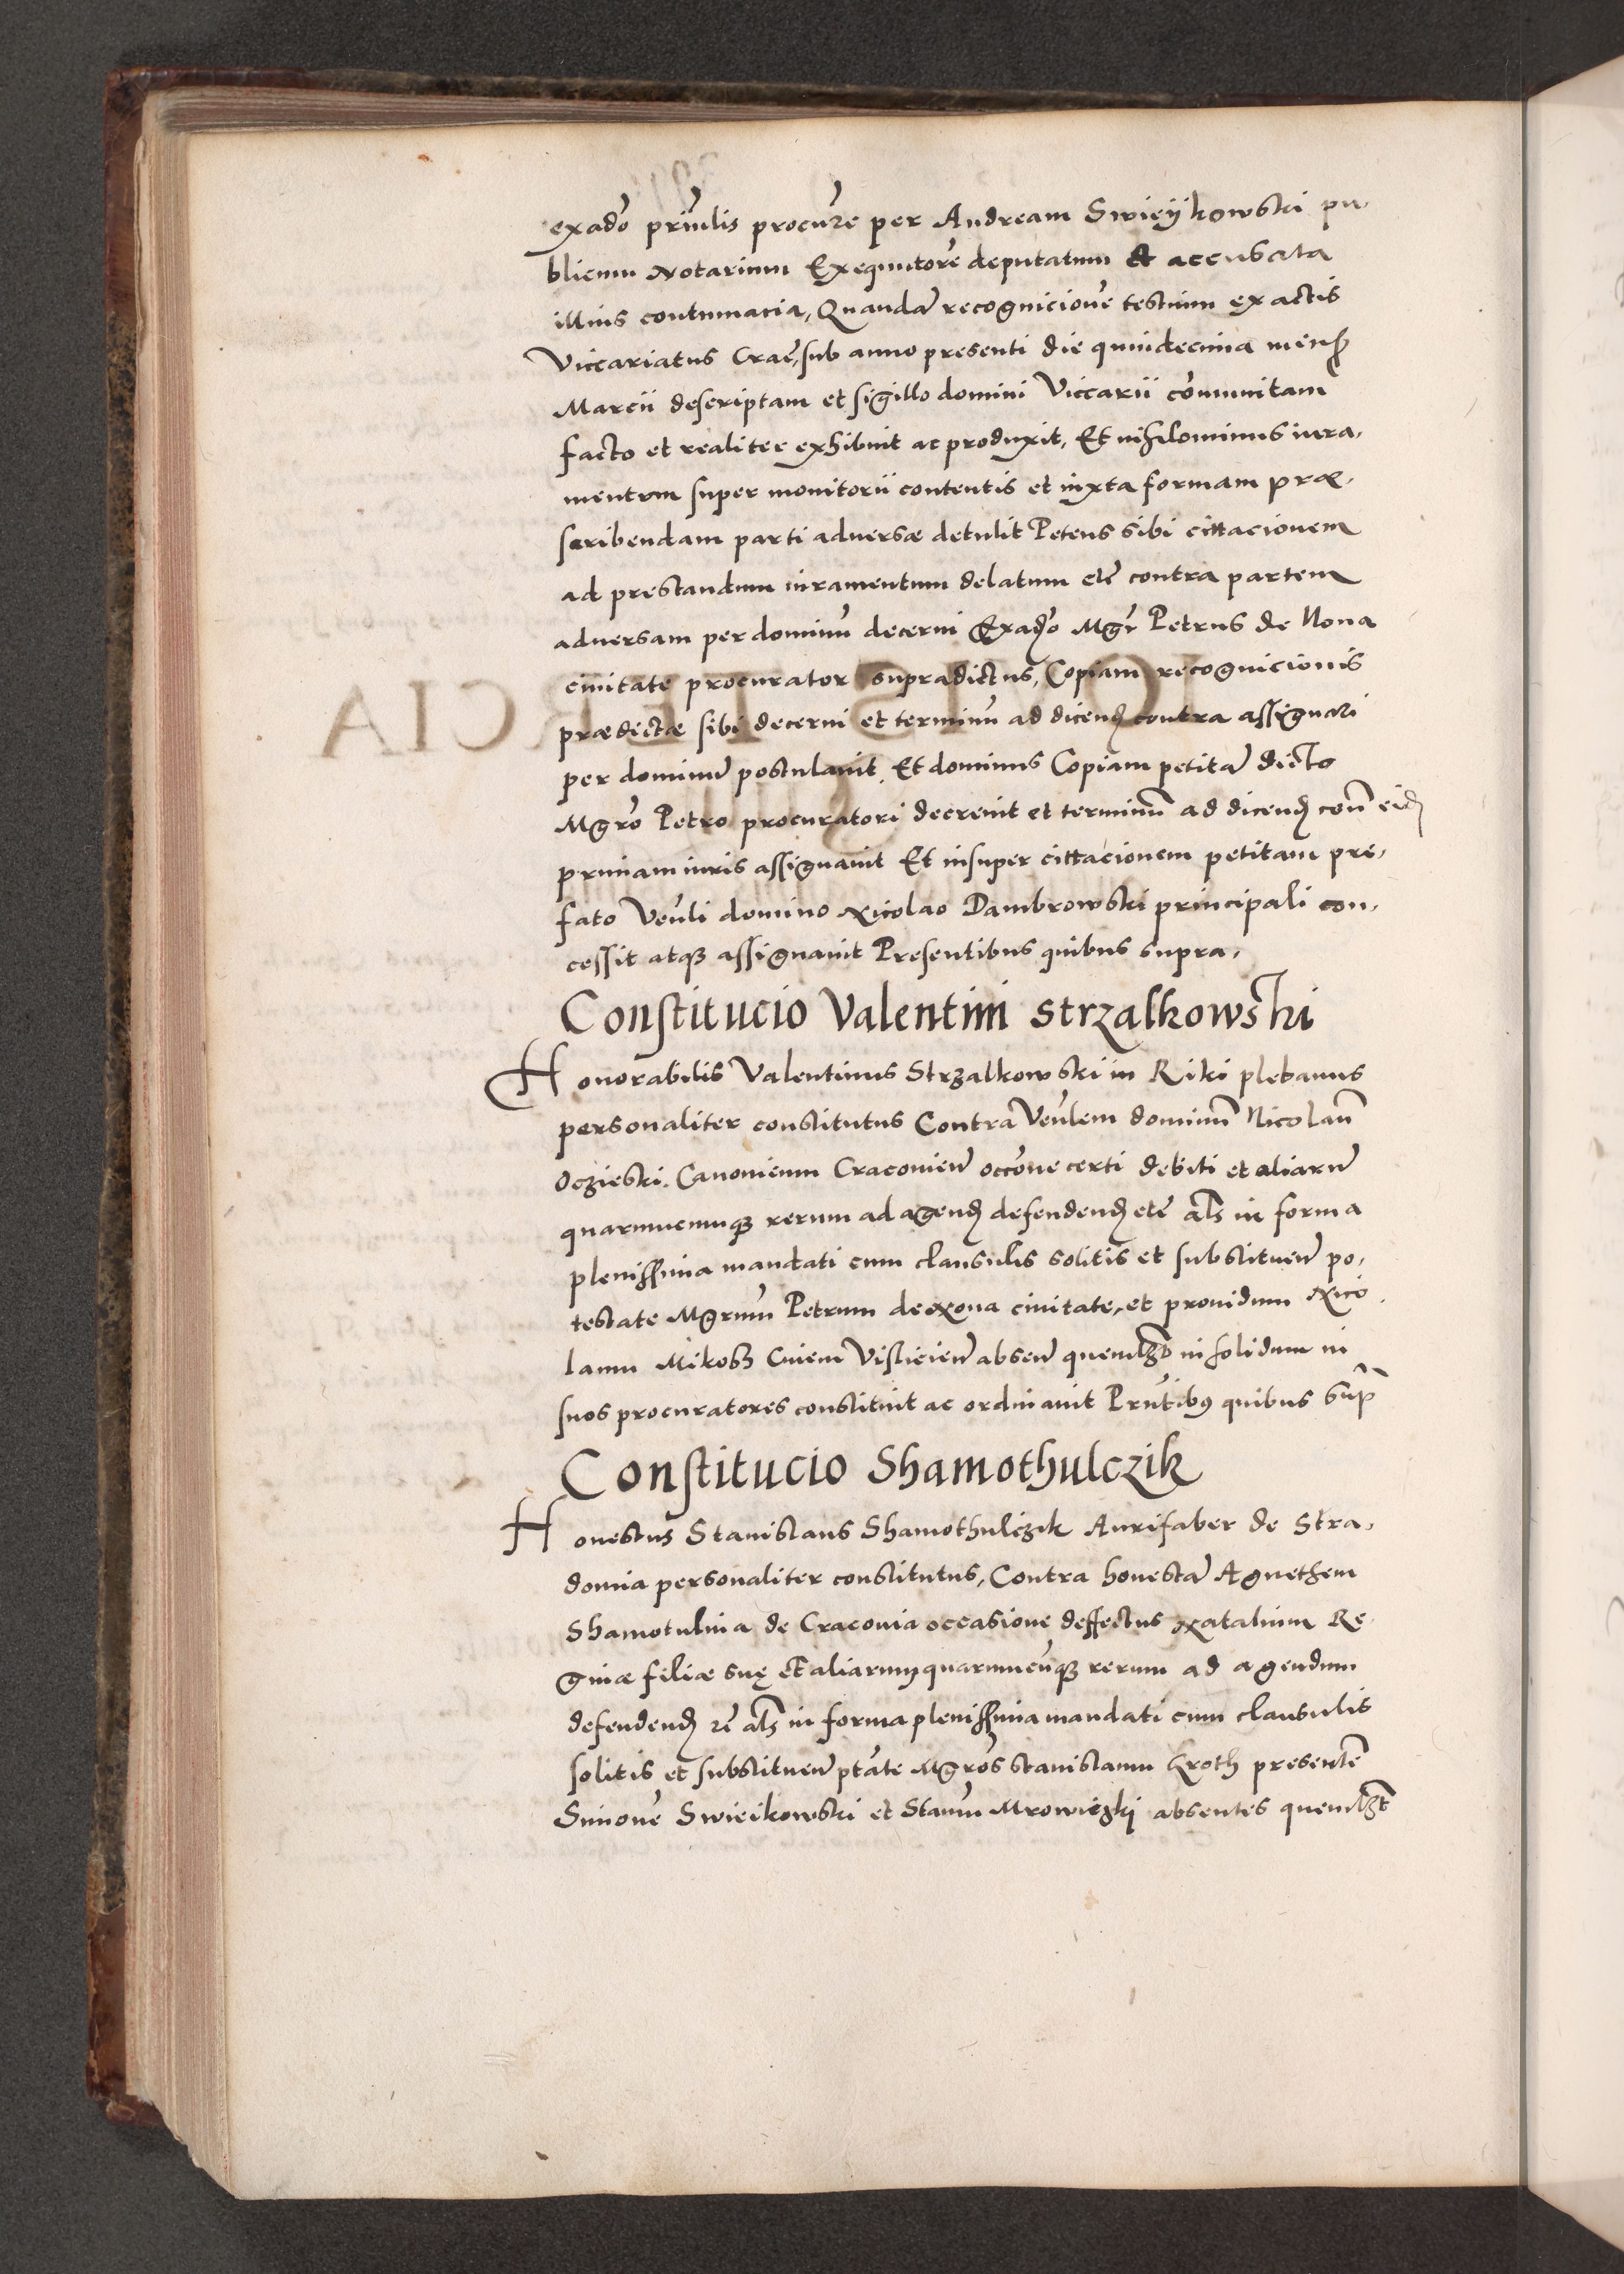 exađo prīnlis procūre per Andream Swieykowski pu,
blicum Notarium Exequutorē deputatum & accusata
illius contumacia, Quandā recognicionē testium ex actis
Viccariatus Craē, sub anno presenti die quindecima mensꝭ
Marcii descriptam et sigillo domini Viccarii cōmunitam
facto et realiter exhibuit ac produxit, Et nihilominus iura,
mentum super monitorii contentis et iuxta formam præ,
scribendam parti adversæ detulit Petens sibi cittacionem
ad prestandum iuramentum delatum etc̄ contra partem
adversam per dominū decerni Exađo Mgr̄ Petrus de Nova
civitate procurator supradictus, Copiam recognicionis
prædictæ sibi decerni et terminū ad dicenđ contra assignari
per dominū postulavit, Et dominus Copiam petitā dicto
Mgrō Petro procuratori decrevit et terminū ad dicenđ con̄ eiđ
primam iuris assignavit Et insuper cittacionem petitam pre,
fato Venīli domino Nicolao Dambrowski principali con,
cessit atqꝫ assignavit Presentibus quibus supra,
Constitucio Valentini Strzalkowski
Honorabilis Valentinus Strzalkowski in Riki plebanus
personaliter constitutus Contra Venīlem dominū Nicolaū
Oczieski. Canonicum Cracovien̄ occōne certi debiti et aliarū
quarumcunqꝫ rerum ad agenđ defendenđ etc̄ al̄s in forma
plenissima mandati cum clausulis solitis et substituen̄ po,
testate Mgrum̄ Petrum de Nova civitate, et providum Nico
laum Mikosz Civem Vislicien̄ absen̄ quemlꝫt in solidum in
suos procuratores constituit ac ordinavit Prn̄tibꝰ quibus sup̄
Constitucio Shamothulczik
Honestus Stanislaus Shamothulczik Aurifaber de Stra,
domia personaliter constitutus, Contra honestā Agnethem
Shamotulina de Cracovia occasione deffectus Natalium Re,
ginæ filiæ suę et aliarum quarumcūnqꝫ rerum ad agendum
defendenđ etc̄ al̄s in forma plenissima mandati cum clausulis
solitis et substituen̄ ptāte Mgrōs Stanislaum Kroth presentē
Simonē Swieikowski et Stanūm Mrowiczki absentes quemlꝫt